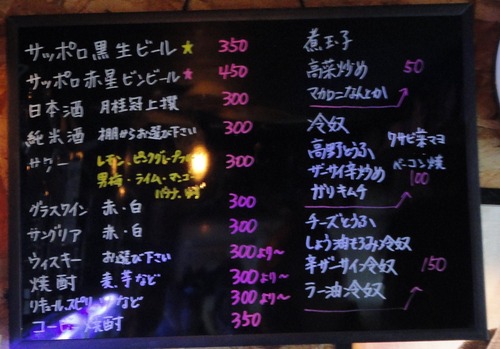 サッポロ黒生ビール★ 350
サッポロ赤星ビンビール★ 450
日本酒 月桂冠上撰 300
純米酒 棚からお選び下さい 300
サワー レモン・ピンクグレープフルーツ 300
男梅・ライム・マンゴー
バナナ
グラスワイン 赤・白 300
サングリア 赤・白 300
ウィスキー お選び下さい 300より〜
焼酎 麦、芋など 300より〜
リキュール、スピリッツなど 300より〜
コーヒー焼酎 350
煮玉子
高菜炒め 50
マカロニなんとか
冷奴
ワサビ菜マヨ
高野とうふ
ベーコン焼
ザーサイ辛炒め 100
ガリキムチ
チーズとうふ
しょう油もろみ冷奴
辛ザーサイ冷奴 150
ラー油冷奴